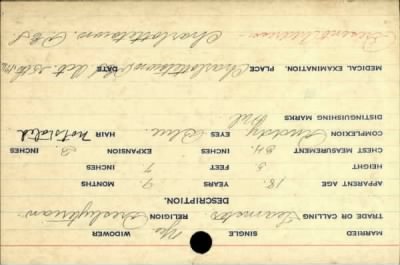 MARRIED SINGLE Yes WIDOWER
TRADE OR CALLING Teamster RELIGION Presbyterian
DESCRIPTION.
APPARENT AGE 18 YEARS 9 MONTHS
HEIGHT 5 FEET 7 INCHES
CHEST MEASUREMENT 34 INCHES EXPANSION 3 INCHES
COMPLEXION Ruddy EYES Blue HAIR not stated
DISTINGUISHING MARKS Nil
MEDICAL EXAMINATION. PLACE Charlottetown DATE Oct. 25th
Charlottetown, P.E.I.